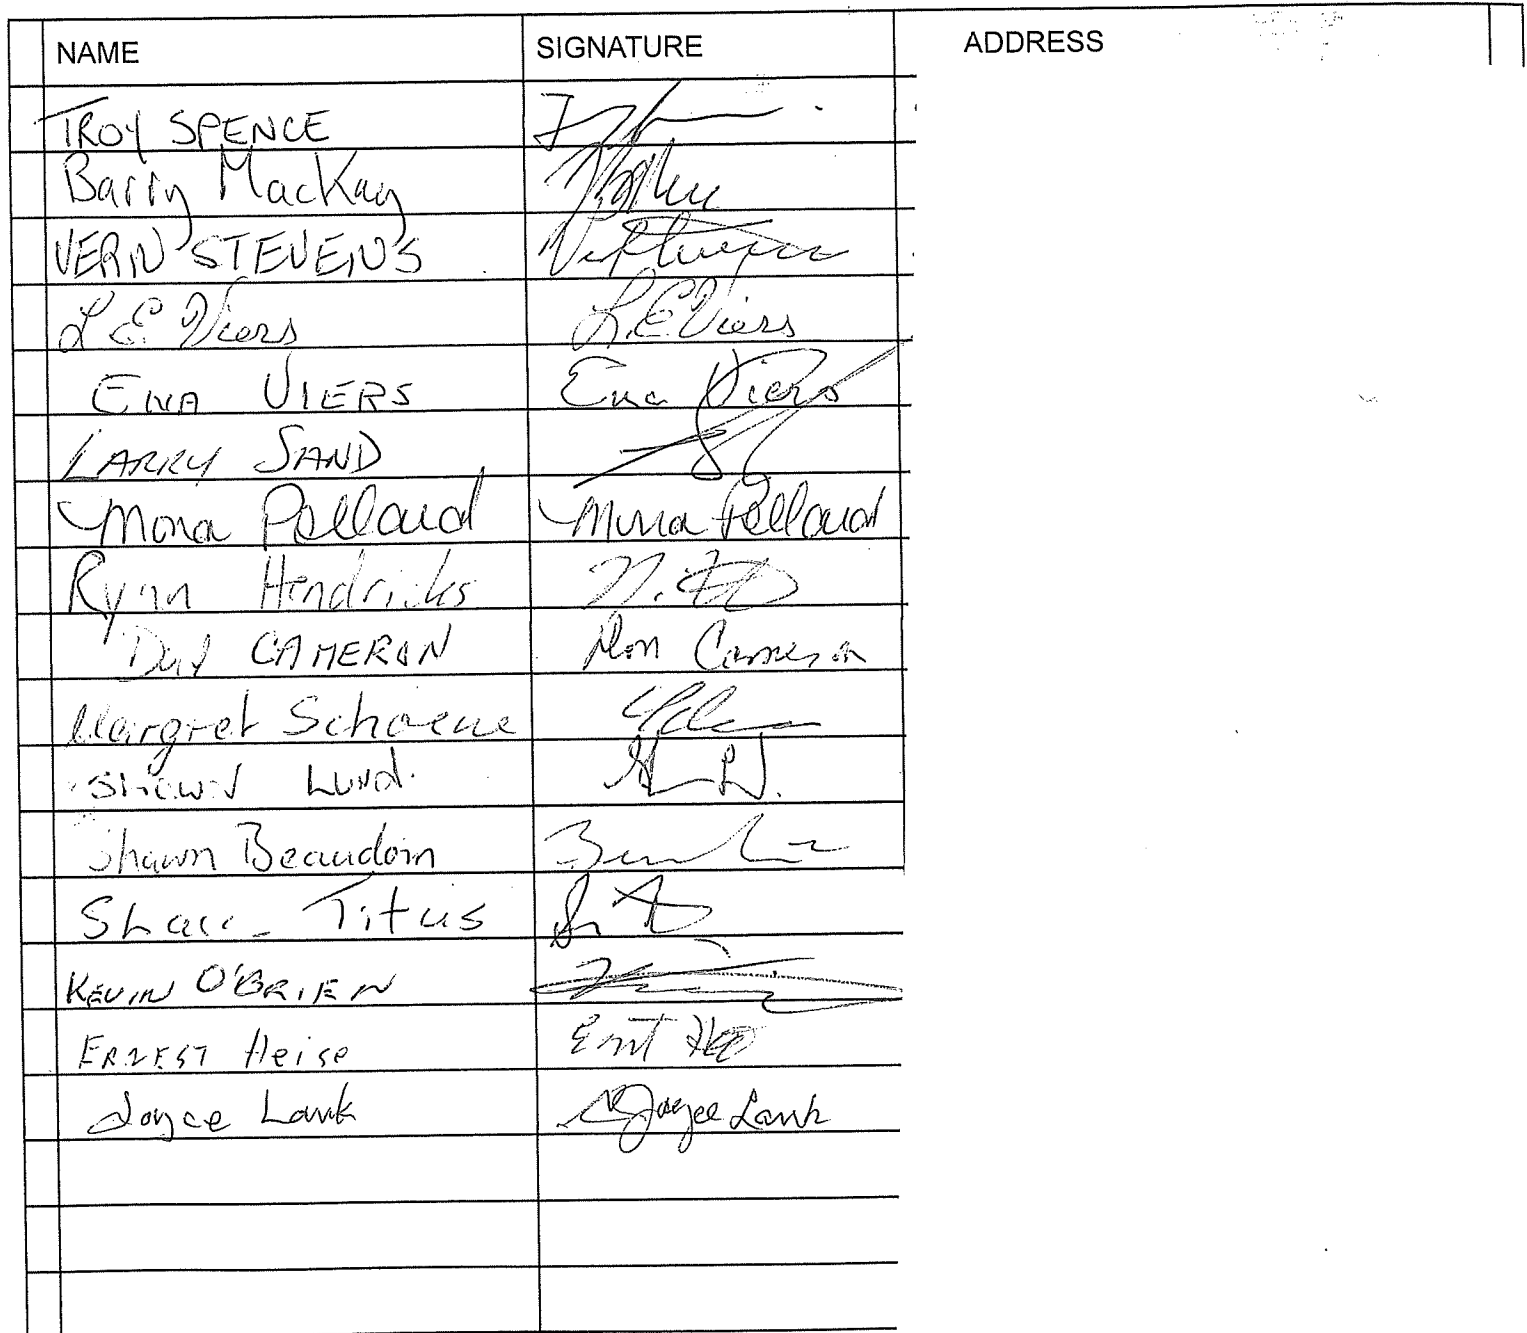 NAME SIGNATURE ADDRESS
TROY SPENCE
Barry MacKay
VERN STEVENS
L.E. Viers L.E. Viers
ENA VIERS Ena Viers
LARRY SAND
Mona Pellaud Mona Pellaud
Rynn Hendricks
CAMERON Don Cameron
Margret Schoene
SHAWN Lund.
Shawn Beaudoin
Titus
KEVIN O'BRIEN
ERNEST Heise
Joyce Lank Joyce Lank